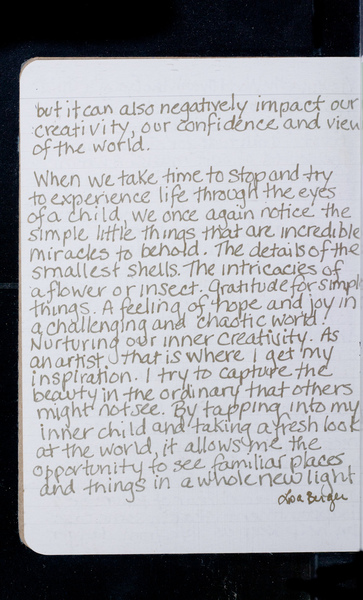 but it can also negatively impact our
creativity, our confidence and view
of the world.
When we take time to stop and try
to experience life through the eyes
of a child, we once again notice the
simple little things that are incredible
miracles to behold. The details of the
smallest shells. The intricacies of
a flower or insect. Gratitude for simple
things. A feeling of hope and joy in
a challenging and chaotic world.
Nurturing our inner creativity. As
an artist, that is where I get my
inspiration. I try to capture the
beauty in the ordinary that others
might not see. By tapping into my
inner child and taking a fresh look
at the world, it allows me the
opportunity to see familiar places
and things in a whole new light
Lisa Berger